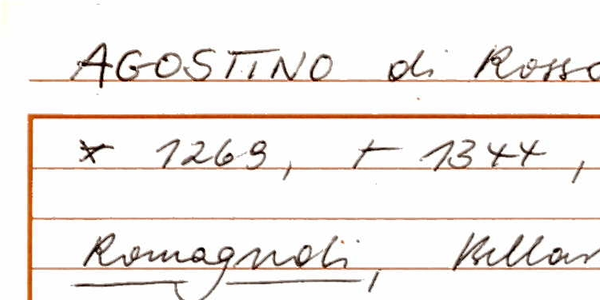 AGOSTINO di Rosso
* 1269, + 1344,
Romagnoli, Bellar